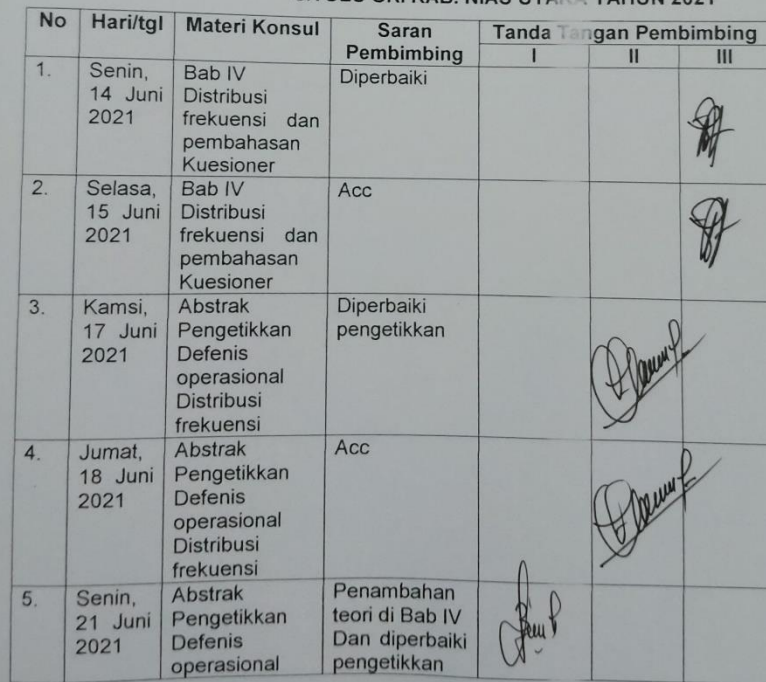 KAB. NIAS UTARA TAHUN 2021
No Hari/tgl Materi Konsul Saran Pembimbing Tanda Tangan Pembimbing
I II III
1. Senin, 14 Juni 2021
Bab IV
Distribusi
frekuensi dan
pembahasan
Kuesioner
Diperbaiki
2. Selasa, 15 Juni 2021
Bab IV
Distribusi
frekuensi dan
pembahasan
Kuesioner
Acc
3. Kamsi, 17 Juni 2021
Abstrak
Pengetikkan
Defenis
operasional
Distribusi
frekuensi
Diperbaiki
pengetikkan
4. Jumat, 18 Juni 2021
Abstrak
Pengetikkan
Defenis
operasional
Distribusi
frekuensi
Acc
5. Senin, 21 Juni 2021
Abstrak
Pengetikkan
Defenis
operasional
Penambahan
teori di Bab IV
Dan diperbaiki
pengetikkan